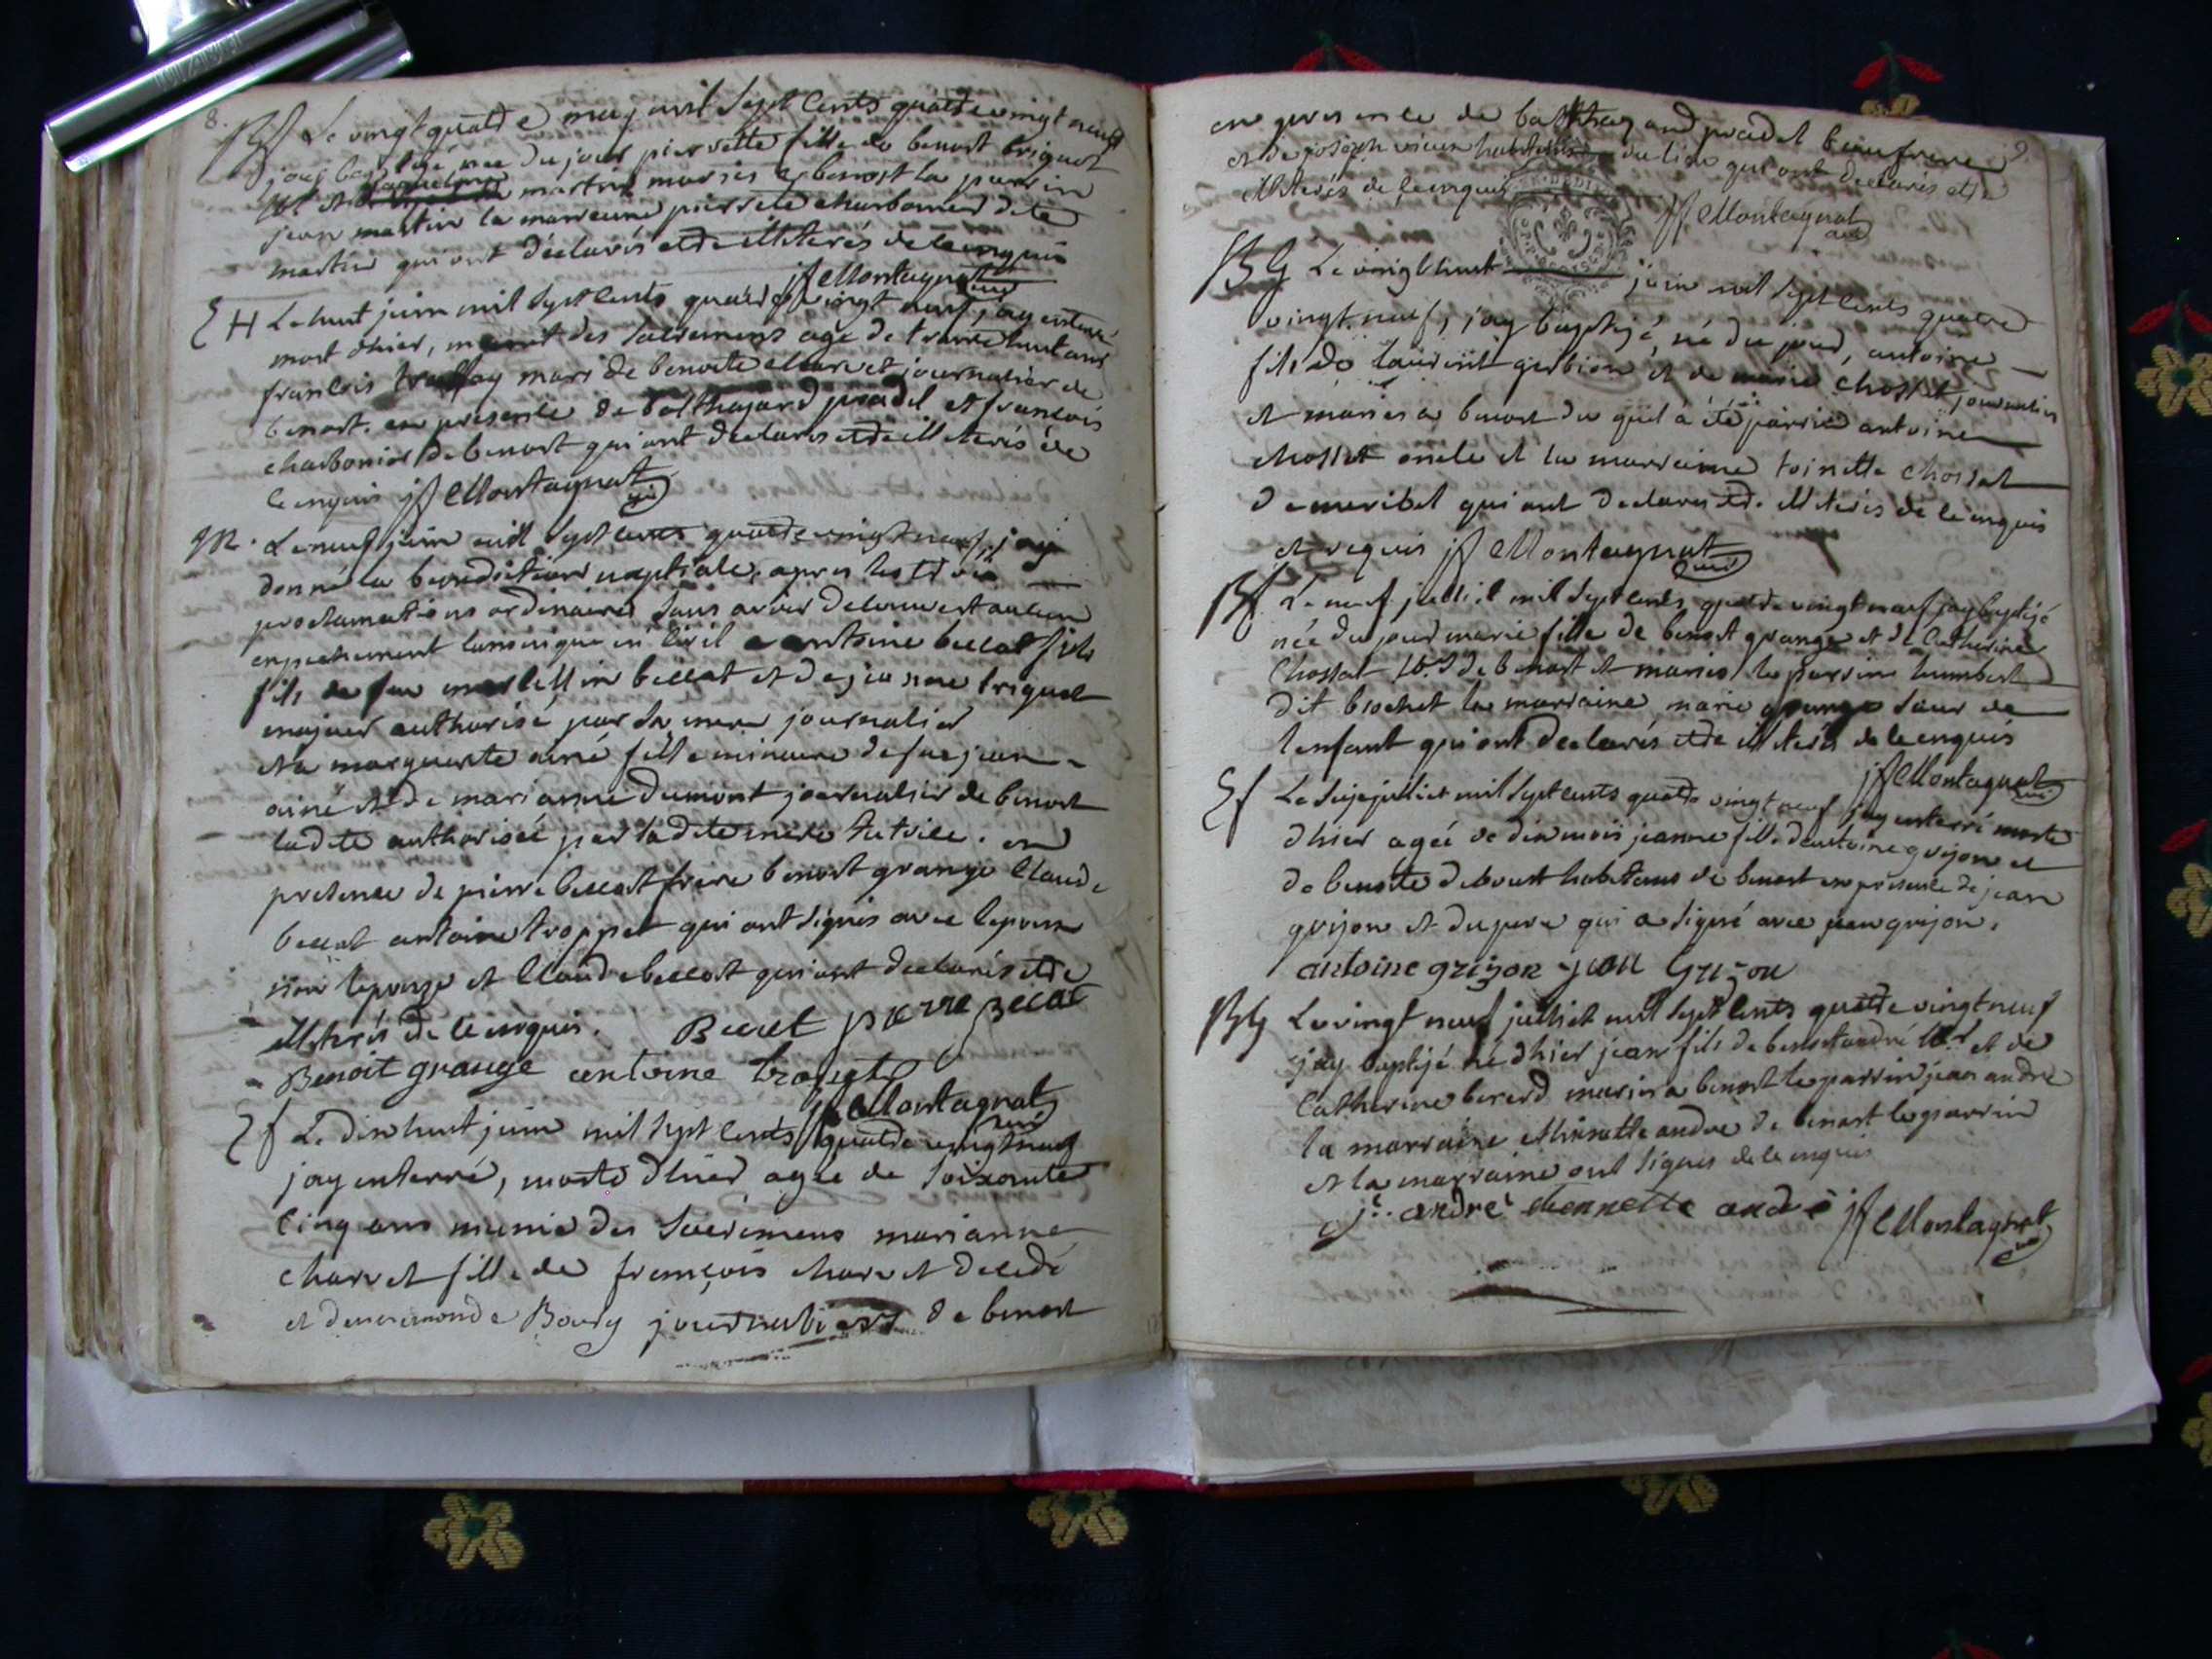 8.
Bf Le vingt quatre may mil sept cents quatre vingt neuf
jay baptisé née du jour pierrette fille de benost briquet
et jaqueline martin mariés a benost le parrin
jean martin la marreine pierrette charbonier dite
martin qui ont déclarés etre illiterés de ce enquis
jf Montagnat curé
EH Le huit juin mil sept cents quatre vingt neuf jay enterré
mort d'hier, munit des sacremens agé de trente huit ans
francois mari de benoite charvet journalier de
benost. en presence de balthazard pradel et francois
charbonier de benost qui ont declarés etre illiterés de
ce enquis jf Montagnat curé
M. Le neuf juin mil sept cents quatre vingt neuf, jay
donné la benediction nuptiale, apres les trois
proclamations ordinaires sans avoir decouvert aucun
enpechement canonique ni civil a antoine beccat fils
fils de feu marcellin beccat et de jeanne briquet
majeur authorisé par sa mere journalier
et a marguerite aimé fille mineure de feu jean
aimé et de marianne dumont journalier de benost
ladite authorisée par ladite mere tutrice. en
presence de pierre beccat frere benost grange Claude
beccat antoine troppet qui ont signés avec lepoux
non lepouze et Claude beccat qui ont declarés etre
illiterés de ce enquis. Beccat pierre Becat
Benoit grange antoine tropet
jf Montagnat curé
Ef Le dix huit juin mil sept cents quatre vingt neuf
jay enterré, morte d'hier agée de soixante
cinq ans munie des sacremens marianne
charvet fille de françois charvet decedé
et de Boury journaliers de benost
9.
en presence de balthazard pradel beaufrere
et de joseph vieux habitans du lieu qui ont declarés etre
illiterés de ce enquis
jf Montagnat curé
BG Le vingt huit juin mil sept cents quatre
vingt neuf, jay baptisé, né du jour, antoine
fils de laurent gerbion et de marie chosset journalier
et mariés a benost du quel a été parrin antoine
chosset oncle et la marraine toinette chosset
de meribel qui ont declarés etre illiterés de ce enquis
et requis jf Montagnat curé
Bf Le neuf juilliet mil sept cents quatre vingt neuf jay baptisé
née du jour marie fille de benost grange et de Catherine
Chossat de benost et mariés le parrin humbert
dit brochet la marraine marie grange sœur de
lenfant qui ont declarés etre illiterés de ce enquis
jf Montagnat curé
Ef Le seize julliet mil sept cents quatre vingt neuf jay enterré morte
d'hier agée de dix mois jeanne fille dantoine grizon et
de benoite debourt habitans de benost en presence de jean
grizon et du pere qui a signé avec jean grizon.
antoine grizon jean Grizon
BG Le vingt neuf julliet mil sept cents quatre vingt neuf
jay baptisé né d'hier jean fils de benoit andré et de
Catherine berard mariés a benost le parrin jean andré
la marraine etiennette andré de benost le parrin
et la marraine ont signés de ce enquis
j. andre etiennette andre jf Montagnat
curé